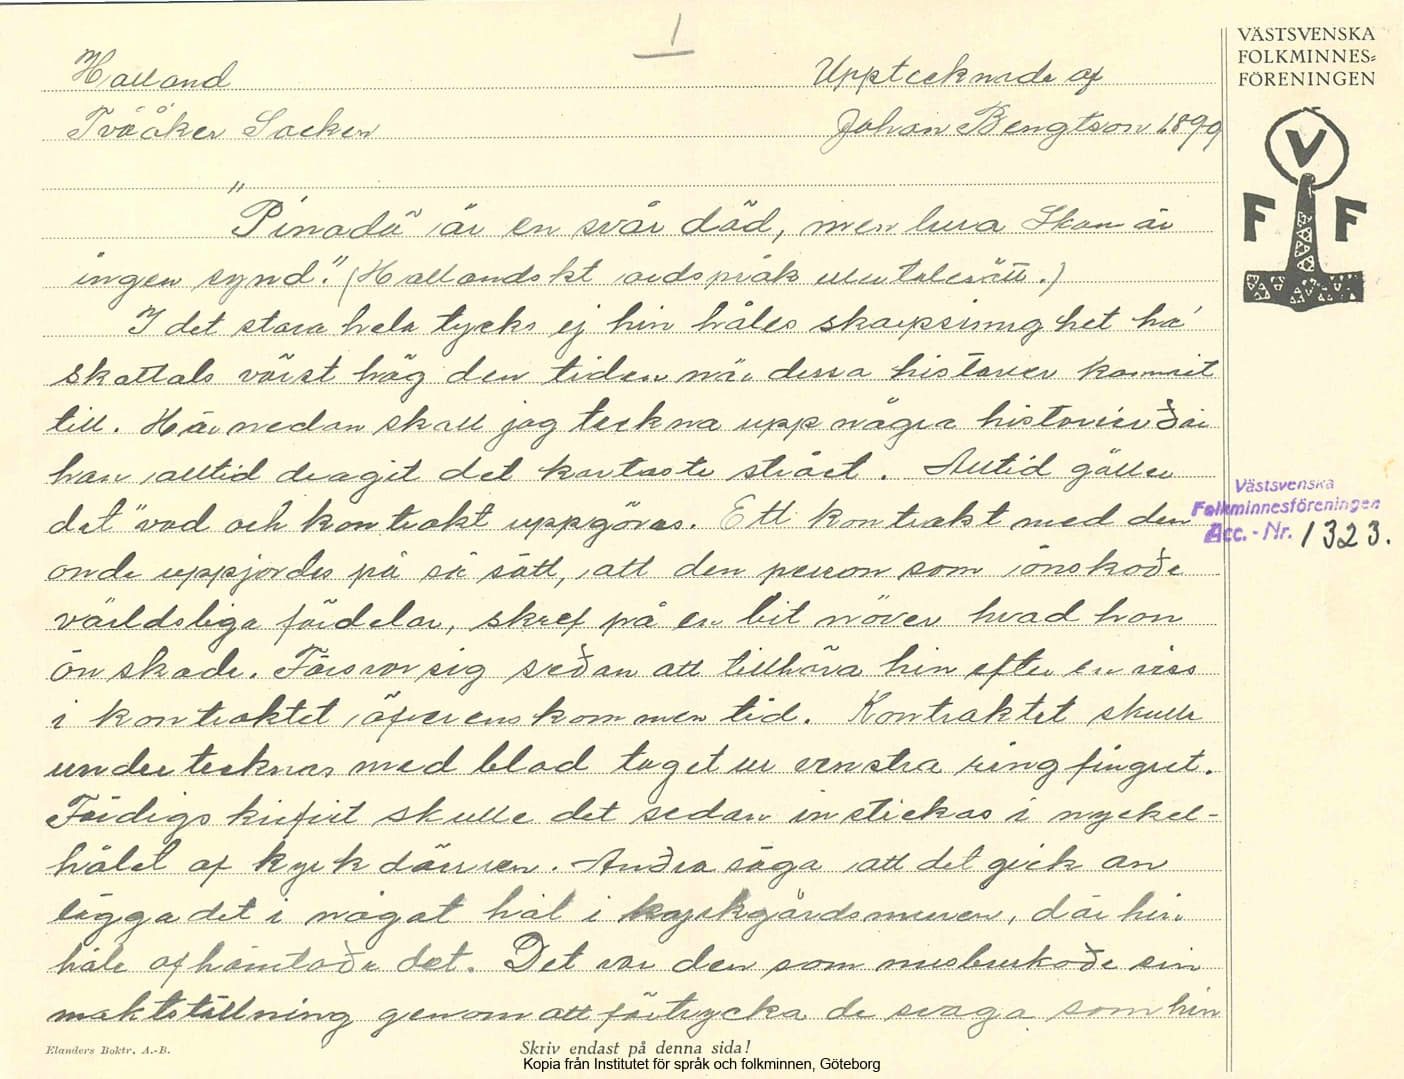 1
VÄSTSVENSKA
FOLKMINNES=
FÖRENINGEN
Halland
Upptecknade af
Tvååker Socken
Johan Bengtson 1899
V
F F
"Pinadö är en svår död, men lura Skam är
ingen synd." (Halländskt ordspråk talesätt.)
I det stora hela tycks ej hin håles skarpsinnighet ha'
skattats värst hög den tiden när dessa historier kommit
till. Här nedan skall jag teckna upp några historier där
han alltid dragit det kortaste strået. Alltid gäller
det vad och kontrakt uppgöras. Ett kontrakt med den
onde uppjordes på så sätt, att den person som önskade
världsliga fördelar, skref på en bit növer hvad hon
önskade. Försvor sig sedan att tillhöra hin efter en viss
i kontraktet öfverenskommen tid. Kontraktet skulle
undertecknas med blod taget ur venstra ringfingret.
Färdigskrifvit skulle det sedan instickas i nyckel-
hålet af kyrkdörren. Andra säga att det gick an
lägga det i något hål i kyrkgårdsmuren, där hin
håle afhämtade det. Det var den som missbrukade sin
maktställning genom att förtrycka de svaga som hin
Västsvenska
Folkminnesföreningen
Acc.-Nr. 1323.
Elanders Boktr. A.-B.
Skriv endast på denna sida!
Kopia från Institutet för språk och folkminnen, Göteborg